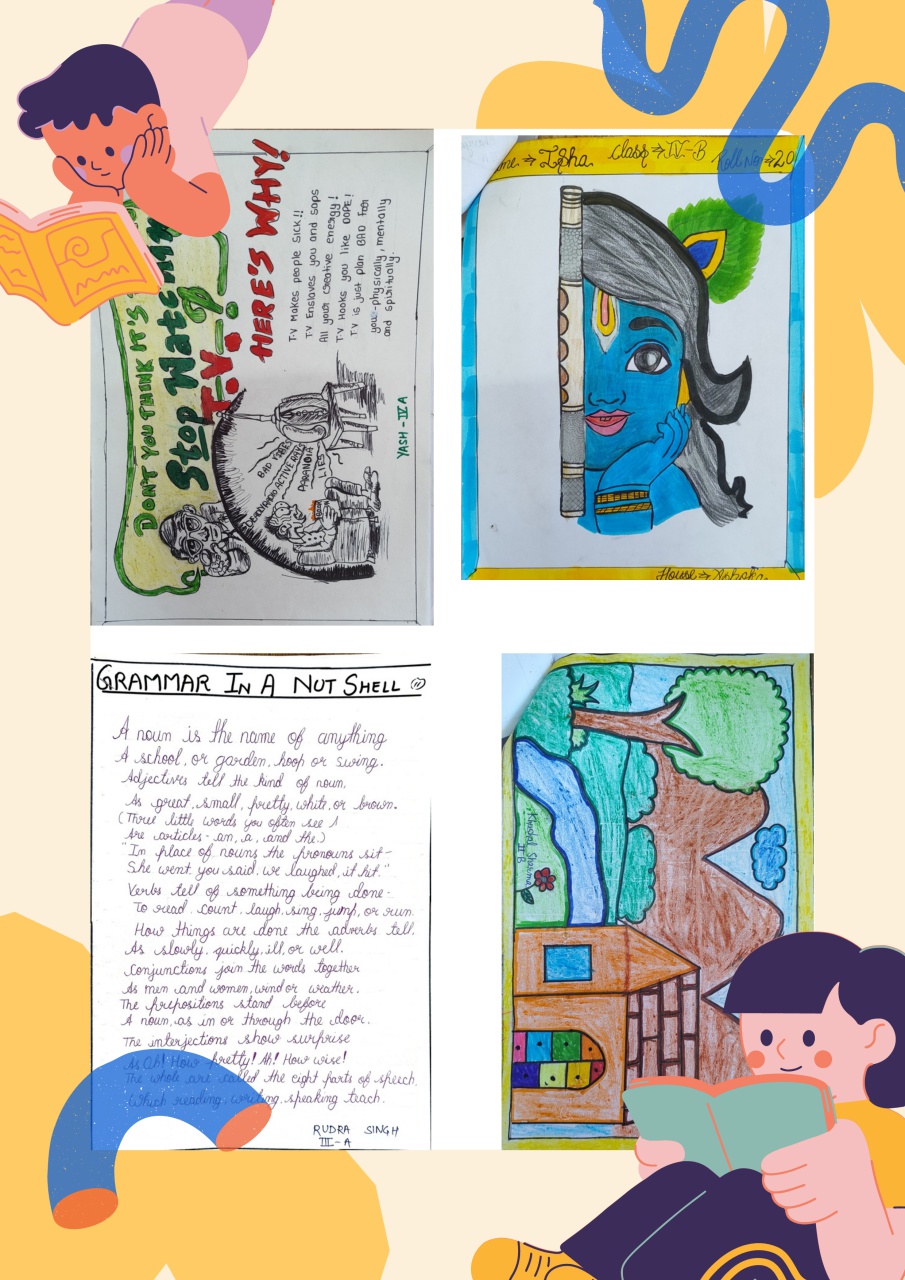 DON'T YOU THINK IT'S
Stop Watchin
T.V.?
HERE'S WHY!
T.V Makes people sick!!
TV Enslaves you and saps
All your creative energy!
TV Hooks you like DOPE!
TV is just plan BAD for
you-physically, mentally
and spiritually.
BAD VIBES
RADIOACTIVE RAYS
PARANOIA
LIES
YASH - IV A
me → Isha class → IV-B Roll No → 20
House → Ashoka
GRAMMAR IN A NUT SHELL
A noun is the name of anything
A school, or garden, hoop or swing.
Adjectives tell the kind of noun,
As great, small, pretty, white, or brown.
(Three little words you often see
Are articles - an, a, and the.)
"In place of nouns the pronouns sit-
She went, you said, we laughed, it hit."
Verbs tell of something being done-
To read, count, laugh, sing, jump, or run.
How things are done the adverbs tell,
As slowly, quickly, ill, or well.
Conjunctions join the words together
As men and women, wind or weather.
The prepositions stand before
A noun, as in or through the door.
The interjections show surprise
As Oh! How pretty! Ah! How wise!
The whole are called the eight parts of speech,
Which reading, writing, speaking teach.
RUDRA SINGH
III-A
Sharma
II B